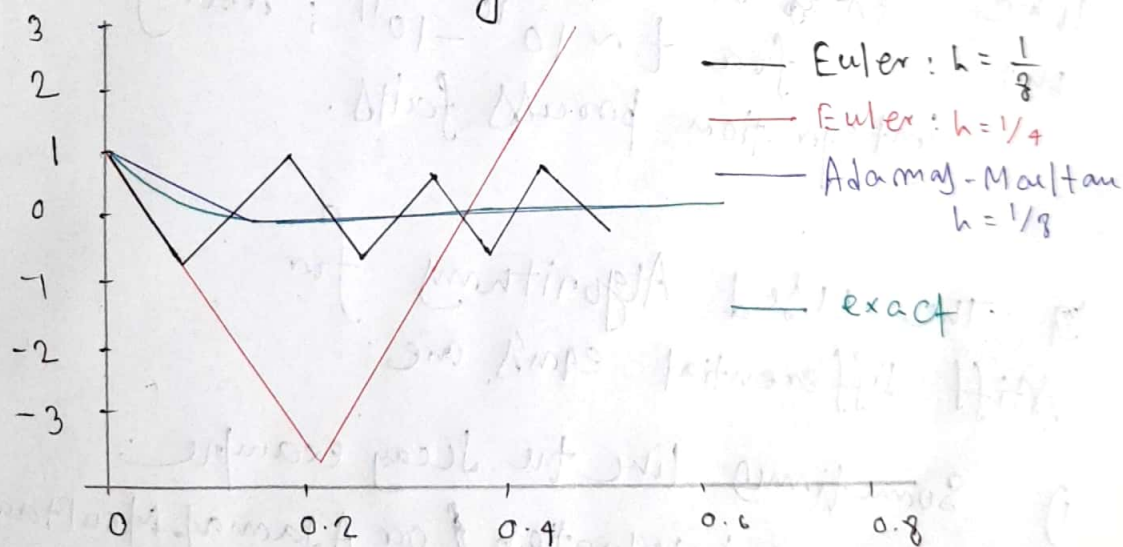 3
2
1
0
-1
-2
-3
0 0.2 0.4 0.6 0.8
Euler : h = 1/8
Euler : h = 1/4
Adamas - Maultau
h = 1/8
exact